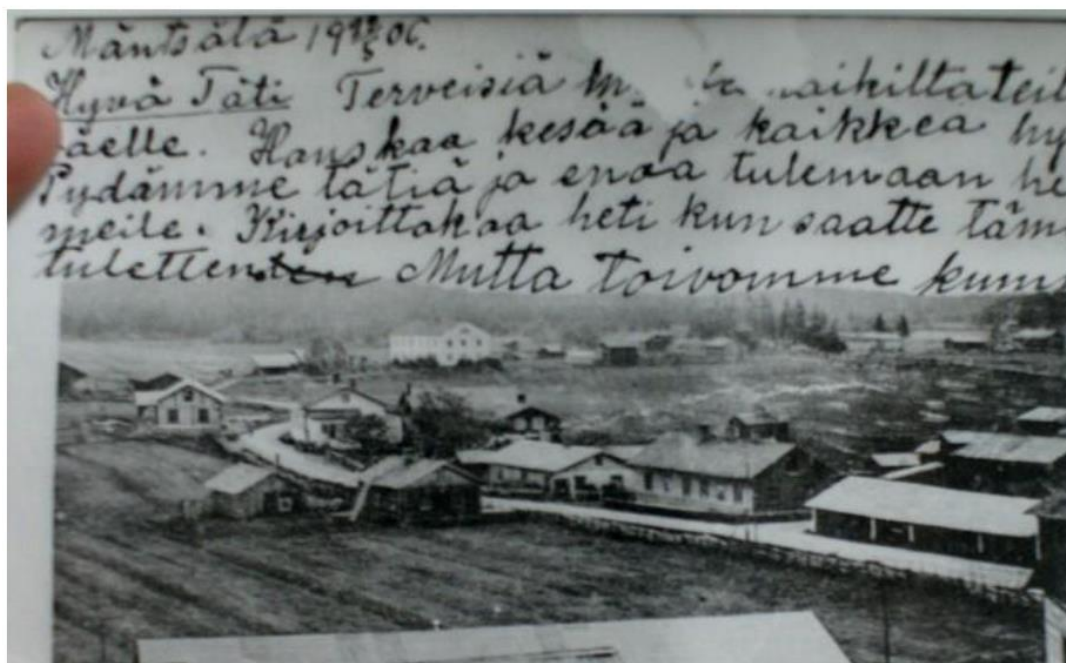 Mäntsälä 19 06.
Hyvä Täti Terveisiä aikilta teil
äelle. Hauskaa kesää ja kaikkea hy
Pydämme tätiä ja enoa tulemaan he
meile. Kirjoittakaa heti kun saatte täm
tuletten Mutta toivomme kum